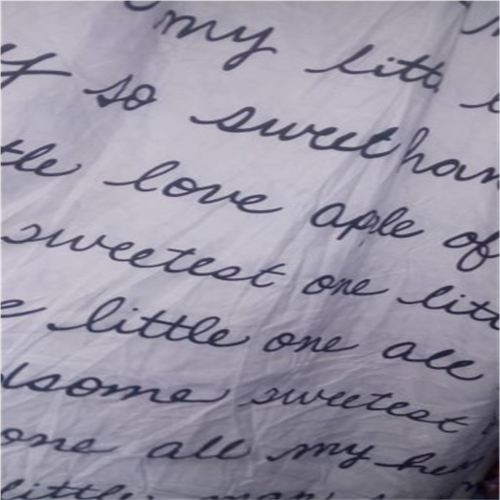 my litt
so sweet han
tle love aple of
sweetest one litt
little one all
some sweetest
one all my he
little man